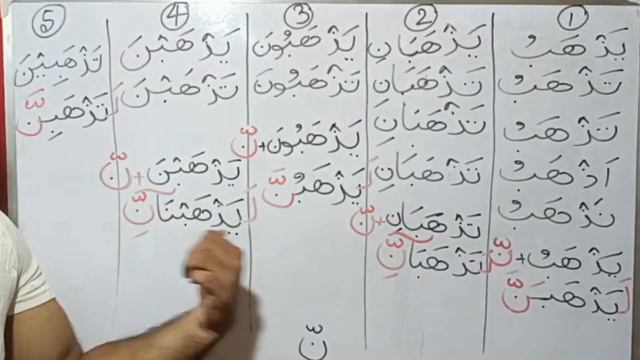 ①
يَذْهَبُ
تَذْهَبُ
تَذْهَبُ
اَذْهَبُ
نَذْهَبُ
يَذْهَبُ+نَّ
لَيَذْهَبَنَّ
②
يَذْهَبَانِ
تَذْهَبَانِ
تَذْهَبَانِ
تَذْهَبَانِ
تَذْهَبَانِ+نَّ
لَتَذْهَبَانِّ
③
يَذْهَبُونَ
تَذْهَبُونَ
يَذْهَبُونَ+نَّ
لَيَذْهَبُنَّ
④
يَذْهَبْنَ
تَذْهَبْنَ
يَذْهَبْنَ+نَّ
لَيَذْهَبْنَانِّ
⑤
تَذْهَبِيْنَ
لَتَذْهَبِنَّ
نّ